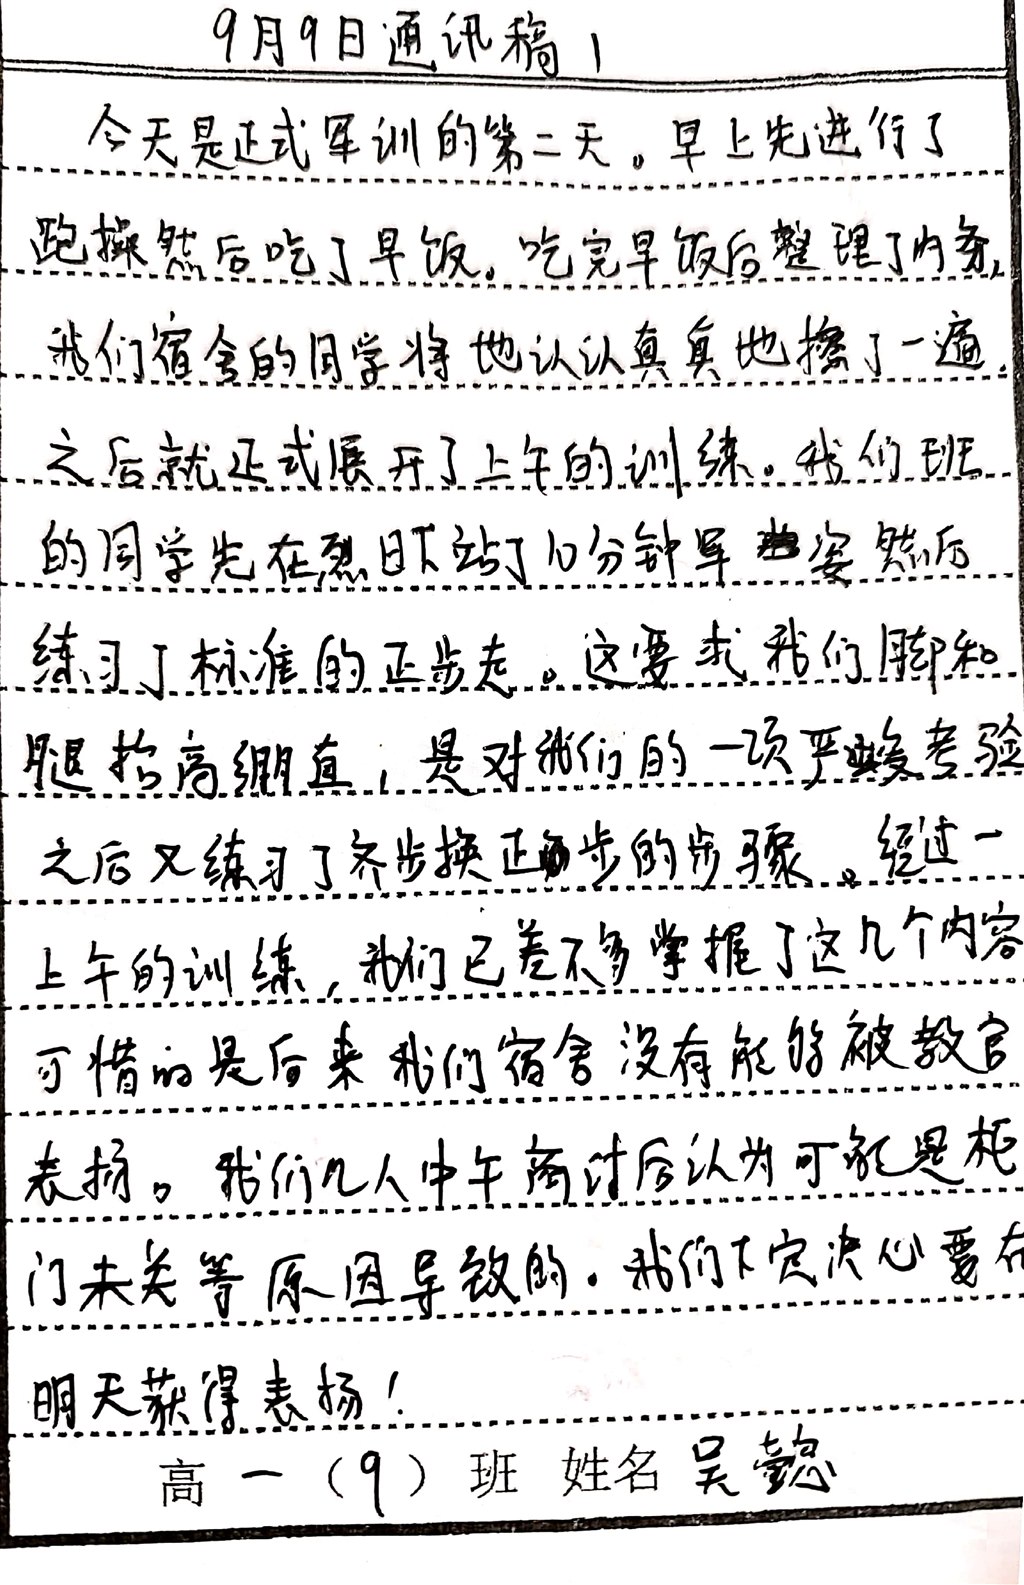 9月9日通讯稿1
今天是正式军训的第二天。早上先进行了
跑操然后吃了早饭。吃完早饭后整理了内务,
我们宿舍的同学将地认认真真地擦了一遍.
之后就正式展开了上午的训练。我们班
的同学先在烈日下站了10分钟军姿然后
练习了标准的正步走。这要求我们脚和
腿抬高绷直,是对我们的一项严峻考验
之后又练习了齐步换正步的步骤。经过一
上午的训练,我们已差不多掌握了这几个内容
可惜的是后来我们宿舍没有能够被教官
表扬。我们几人中午商讨后认为可能是柜
门未关等原因导致的.我们下定决心要在
明天获得表扬!
高一(9)班 姓名吴懿